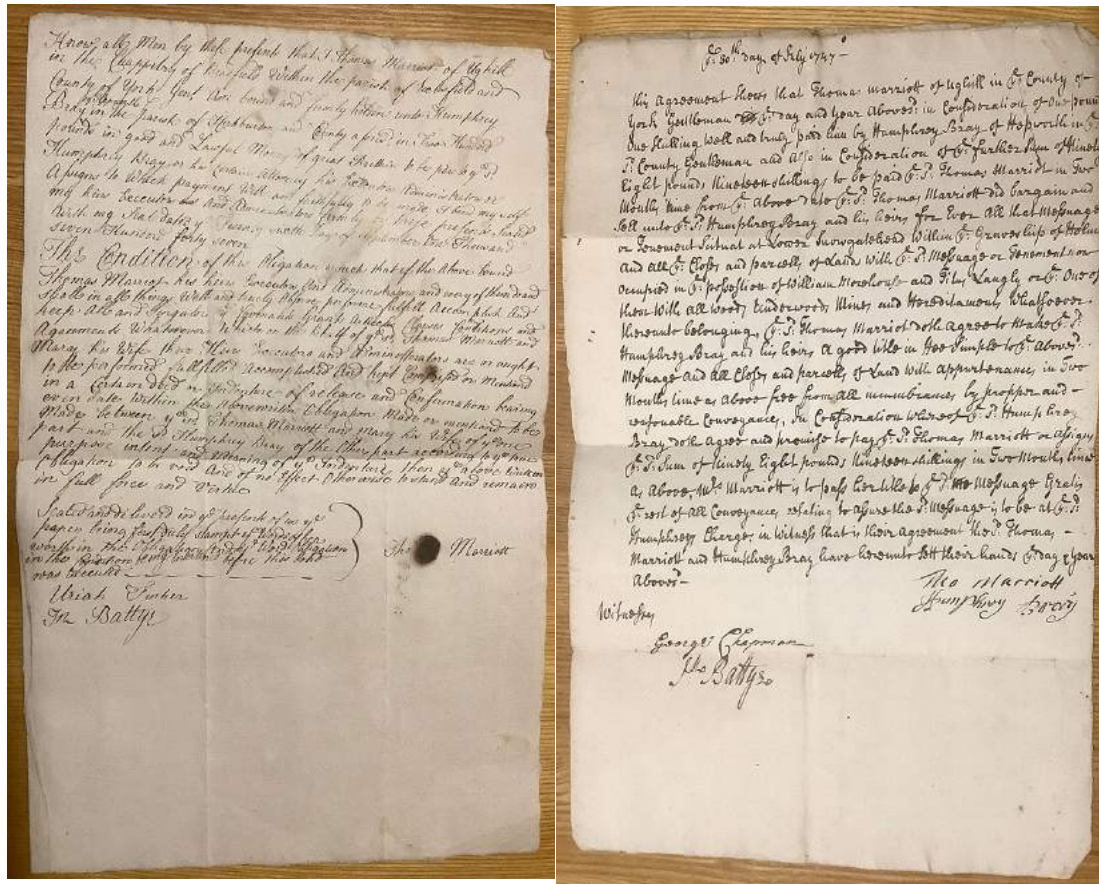 Know all Men by these presents that I Thomas Marriott of Ughill
in the Chappelry of Bradfield Within the parish of Eccelsfield and
County of York Gent Am bound and firmly holden unto Humphrey
Bray in the parish of Kirkburton and County afores.d in Two Hundred
pounds in good and Lawful Money of great to be paid to y.e S.d
Humphrey Bray or his Certain Attorney his Executors Administrators or
Assigns to Which payment Well and faithfully to be made I bind my self
my heirs Executors and Administrators firmly by these presents Sealed
With my Seal dated Twenty day of September One Thousand
Seven Hundred forty seven
The Condition of this Obligation is such that if the Above bound
Thomas Marriott his heirs Executors and Administrators and every of them do and
shall in all things Well and truly Observe perform fulfill Accomplish And
keep All and Singular y.e Covenants Grants Articles Clauses Conditions and
Agreements Whatsoever Which on the behalf of y.e s.d Thomas Marriott and
Mary his Wife their Heirs Executors and Administrators are or ought
to be performed fullfilled Accomplished And kept Comprised or Mentioned
in a Certain deed or Indenture of release and Confirmation bearing
even date Within the Abovewritten Obligation Made or mentioned to be
Made between y.e s.d Thomas Marriott and Mary his Wife of y.e one
part and the S.d Humphry Bray of the Other part according to y.e true
purpose intent and meaning of y.e s.d Indenture then y.e above Written
Obligation to be void And of no Effect Otherwise to stand And remain
in full force and Virtue
Sealed and delivered in y.e presence of us y.e
paper being first duly stampt y.e Words
in the Obligation and y.e Word Obligation
in the Condition being before this Bond
was Executed
Tho Marriott
Uriah Tinker
Jn Battye
y.e 30th day of July 1747
This Agreement Shews that Thomas Marriott of Ughill in y.e County of
York Gentleman y.e day and year Aboves.d in Consideration of One pound
One Shilling Well and truly paid him by Humphrey Bray of Hepworth in y.e
s.d County Gentleman and Also in Consideration of y.e further Sum of Ninety
Eight pounds Nineteen shillings to be paid y.e s.d Thomas Marriott in Two
Months time from y.e Above date y.e s.d Thomas Marriott did bargain and
Sell unto y.e s.d Humphrey Bray and his heirs for Ever All that Messuage
or Tenement Situat at Lower Snowgatehead Within y.e Graveship of Holme
And all y.e Closes and parcells of Land with y.e s.d Messuage or Tenement now
Occupied in y.e possession of William Morehouse and Titus Langly or y.e One of
them With all woods Underwoods Mines and Hereditaments Whatsoever
thereunto belonging y.e s.d Thomas Marriott doth Agree to Make y.e s.d
Humphrey Bray and his heirs A good title in Fee Simple to y.e Above s.d
Messuage and All Closes and parcells of Land With Appurtenances in Two
Months time as Above free from All incumbrances by propper and
reasonable Conveyance, In Consideration Whereof y.e s.d Humphrey
Bray doth Agree and promise to pay y.e s.d Thomas Marriott or Assigns
y.e s.d Sum of Ninety Eight pounds Nineteen shillings in Two Months time
as Above, M.rs Marriott is to pass her title to y.e s.d Messuage Gratis
y.e rest of All Conveyance relating to Assure the s.d Messuage is to be at y.e s.d
Humphreys Charges in Witness that is their Agreement the s.d Thomas
Marriott and Humphrey Bray have hereunto Sett their hands y.e day & year
Aboves.d
Tho Marriott
Humphrey Bray
Witnesses
George Chapman
Jno Battye